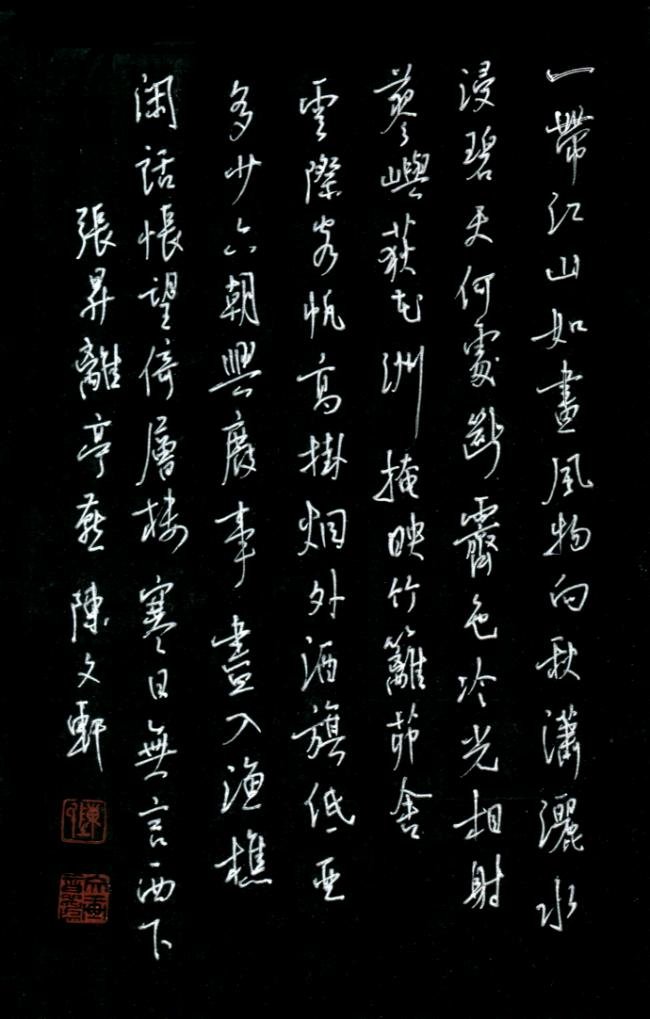 一帶江山如畫風物向秋瀟灑水
浸碧天何處斷霽色冷光相射
蓼嶼荻花洲掩映竹籬茆舍
雲際客帆高掛烟外酒旗低亞
多少六朝興廢事盡入漁樵
閑話悵望倚層樓寒日無言西下
張昇離亭燕 陳文郵